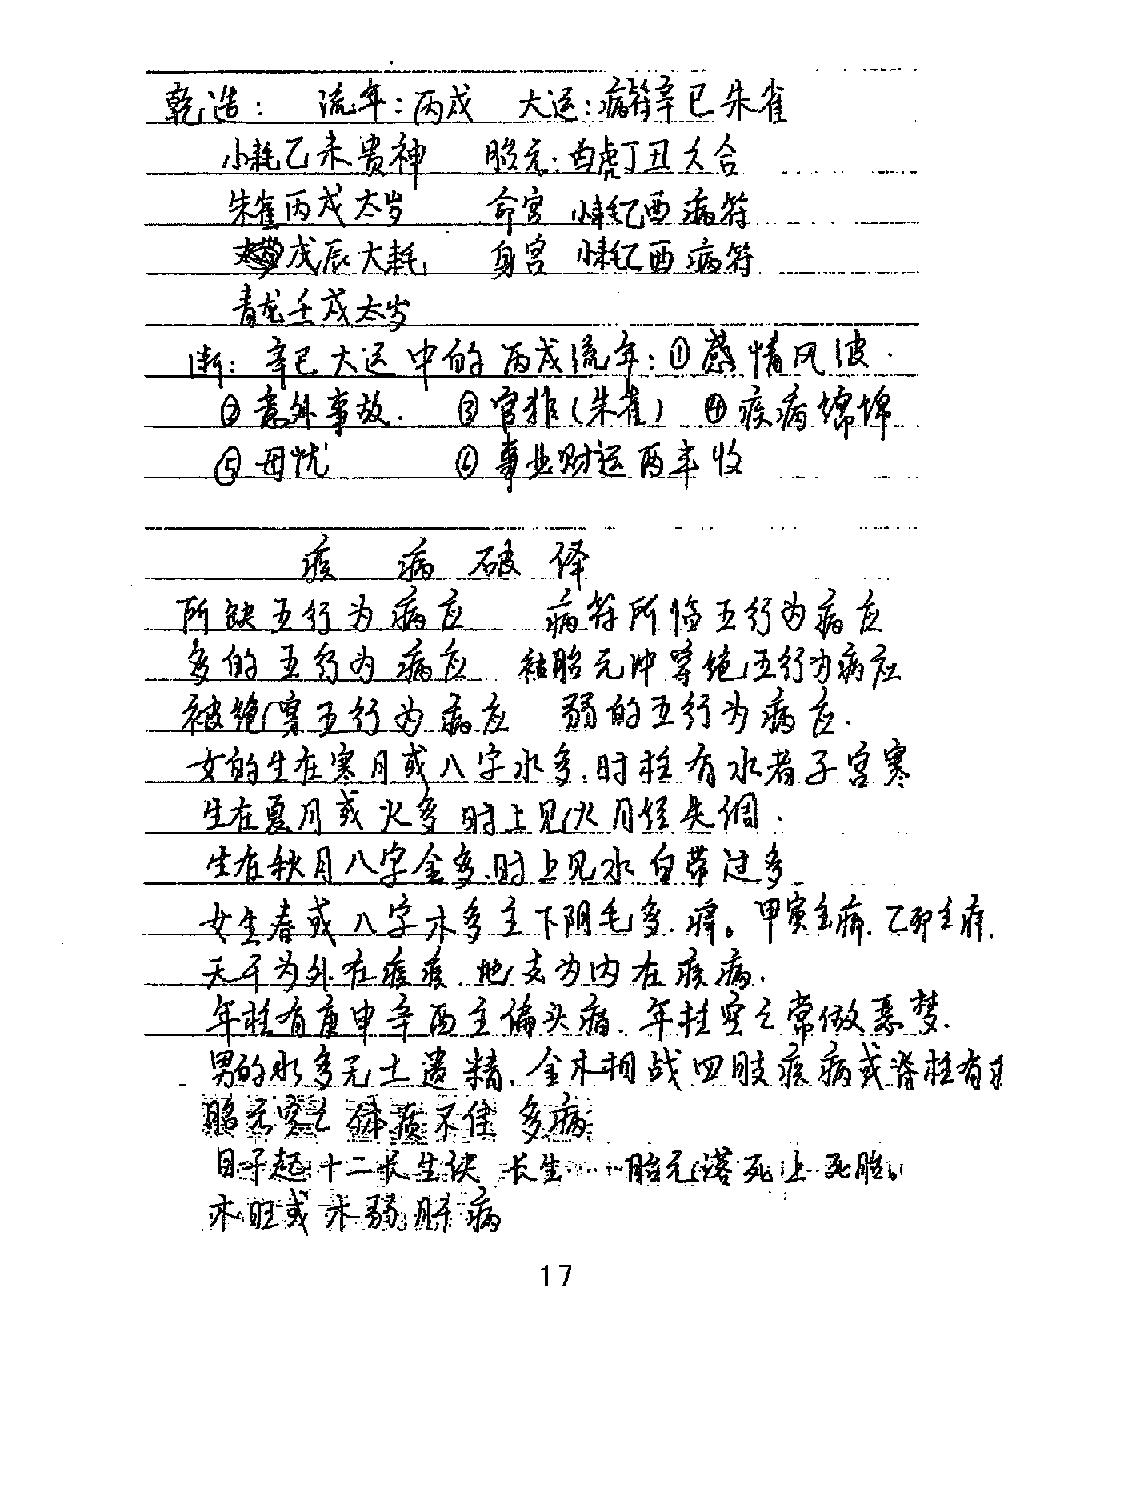 乾造： 流年：丙戌 大运：病符辛巳朱雀
小耗乙未贵神 胎元：白虎丁丑六合
朱雀丙戌太岁 命宫 小耗乙酉病符
戊辰大耗 身宫 小耗乙酉病符
青龙壬戌太岁
断：辛巳大运中的丙戌流年：①感情风波.
②意外事故. ③官非(朱雀) ④疾病绵绵
⑤母忧 ⑥事业财运两丰收
疾病破译
所缺五行为病应 病符所临五行为病应
多的五行为病应 被胎元冲穿绝五行为病应
被绝穿五行为病应 弱的五行为病应.
女的生在寒月或八字水多.时柱有水者子宫寒
生在夏月或火多时上见火月经失调.
生在秋月八字金多.时上见水白带过多
女生春或八字木多主下阴毛多.痒。甲寅主痛.乙卯主痒.
天干为外在疾痪.地支为内在疾病.
年柱有庚申辛酉主偏头痛.年柱空亡常做恶梦.
男的水多无土遗精.金木相战四肢疾病或脊柱有
胎元空亡体质不佳 多病
日干起十二长生诀 长生……胎元落死上死胎。
木旺或木弱肝病
17